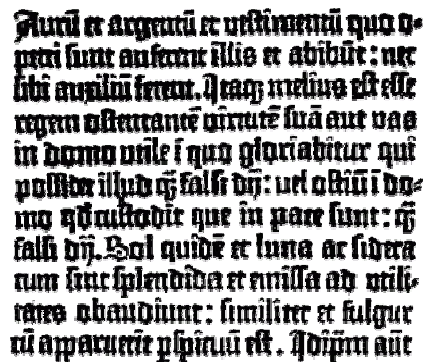 Aurū et argentū et vestimentū quo o-
peri sunt auferent illis et abibūt: nec
sibi auxiliū ferent. Itaq; melius est esse
regem ostentantē virtutē suā aut vas
in domo utile ī quo gloriabitur qui
possidet illud q̄ falsi dij: vel ostiū ī do-
mo qd custodit que in pace sunt: q̄
falsi dij. Sol quidē et luna ac sidera
cum sint splendida et emissa ad utili-
tates obaudiunt: similiter et fulgur
cū apparuerit pspicuū est. Idip̄m aūt